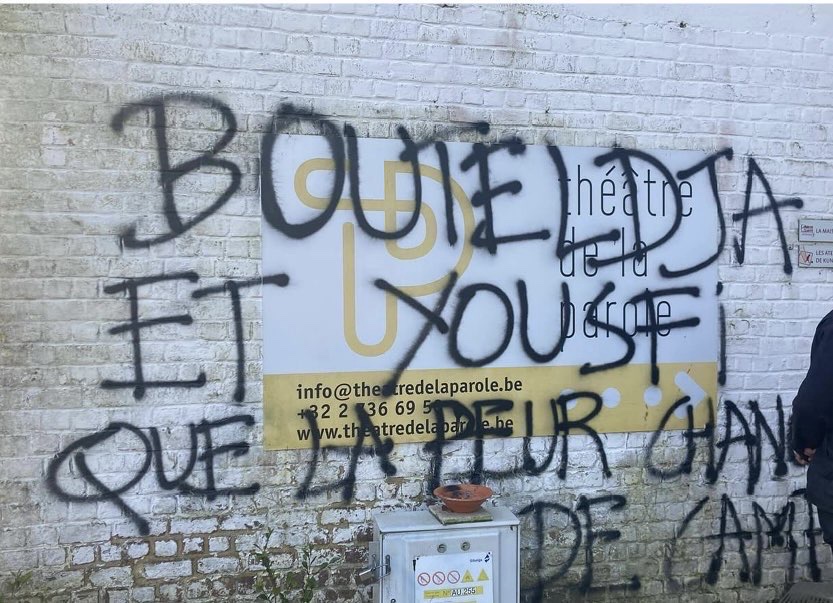 BOUTELDJA
ET YOUSFi
QUE LA PEUR CHAN
DE CAMP
théâtre
de la
parole
info@theatredelaparole.be
+32 2 736 69 5
www.theatredelaparole.be
LA MAI
LES ATE
DE KUN
Sibelga
N° AU.255